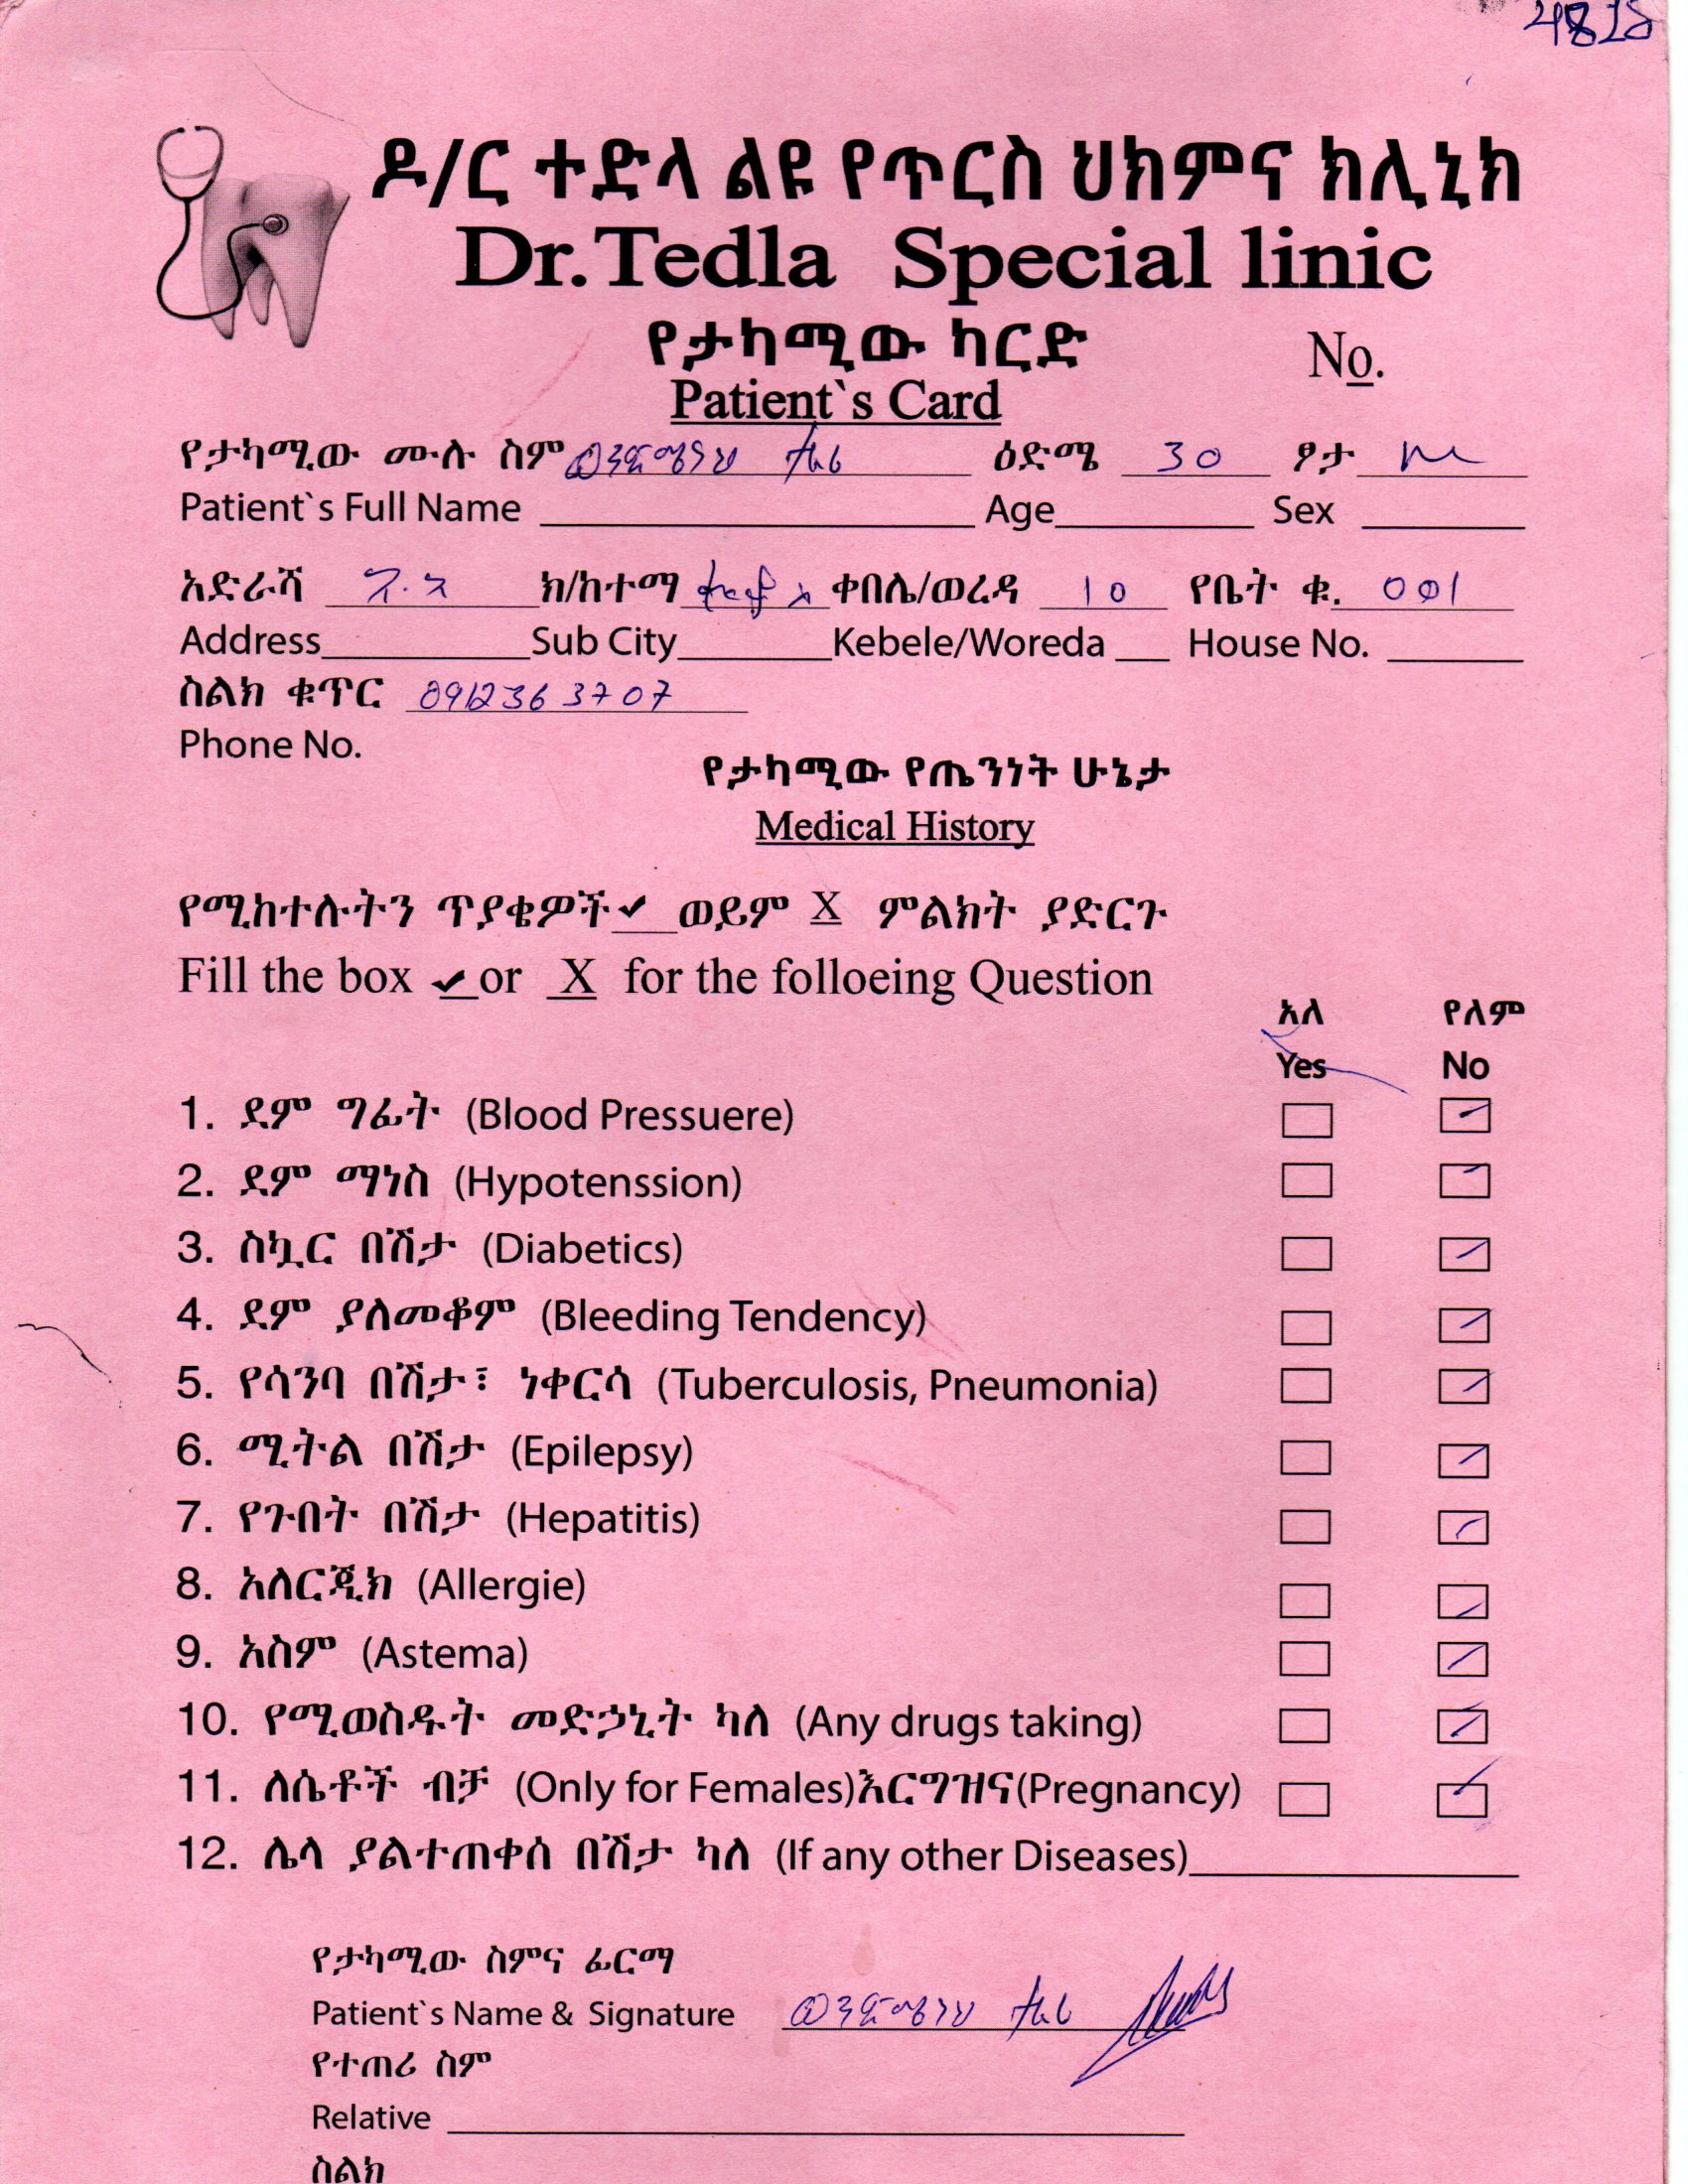 4818
ዶ/ር ተድላ ልዩ የጥርስ ህክምና ክሊኒክ
Dr.Tedla Special linic
የታካሚው ካርድ
No.
Patient`s Card
የታካሚው ሙሉ ስም ዕድሜ 30 ፆታ M
Patient`s Full Name Age Sex
አድራሻ ክ/ከተማ ቀበሌ/ወረዳ 10 የቤት ቁ. 001
Address Sub City Kebele/Woreda House No.
ስልክ ቁጥር 0912363707
Phone No.
የታካሚው የጤንነት ሁኔታ
Medical History
የሚከተሉትን ጥያቄዎች ✓ ወይም X ምልክት ያድርጉ
Fill the box ✓ or X for the folloeing Question
አለ የለም
Yes No
1. ደም ግፊት (Blood Pressuere)
2. ደም ማነስ (Hypotenssion)
3. ስኳር በሽታ (Diabetics)
4. ደም ያለመቆም (Bleeding Tendency)
5. የሳንባ በሽታ፣ ነቀርሳ (Tuberculosis, Pneumonia)
6. ሚትል በሽታ (Epilepsy)
7. የጉበት በሽታ (Hepatitis)
8. አለርጂክ (Allergie)
9. አስም (Astema)
10. የሚወስዱት መድኃኒት ካለ (Any drugs taking)
11. ለሴቶች ብቻ (Only for Females)እርግዝና(Pregnancy)
12. ሌላ ያልተጠቀሰ በሽታ ካለ (If any other Diseases)
የታካሚው ስምና ፊርማ
Patient`s Name & Signature
የተጠሪ ስም
Relative
ስልክ